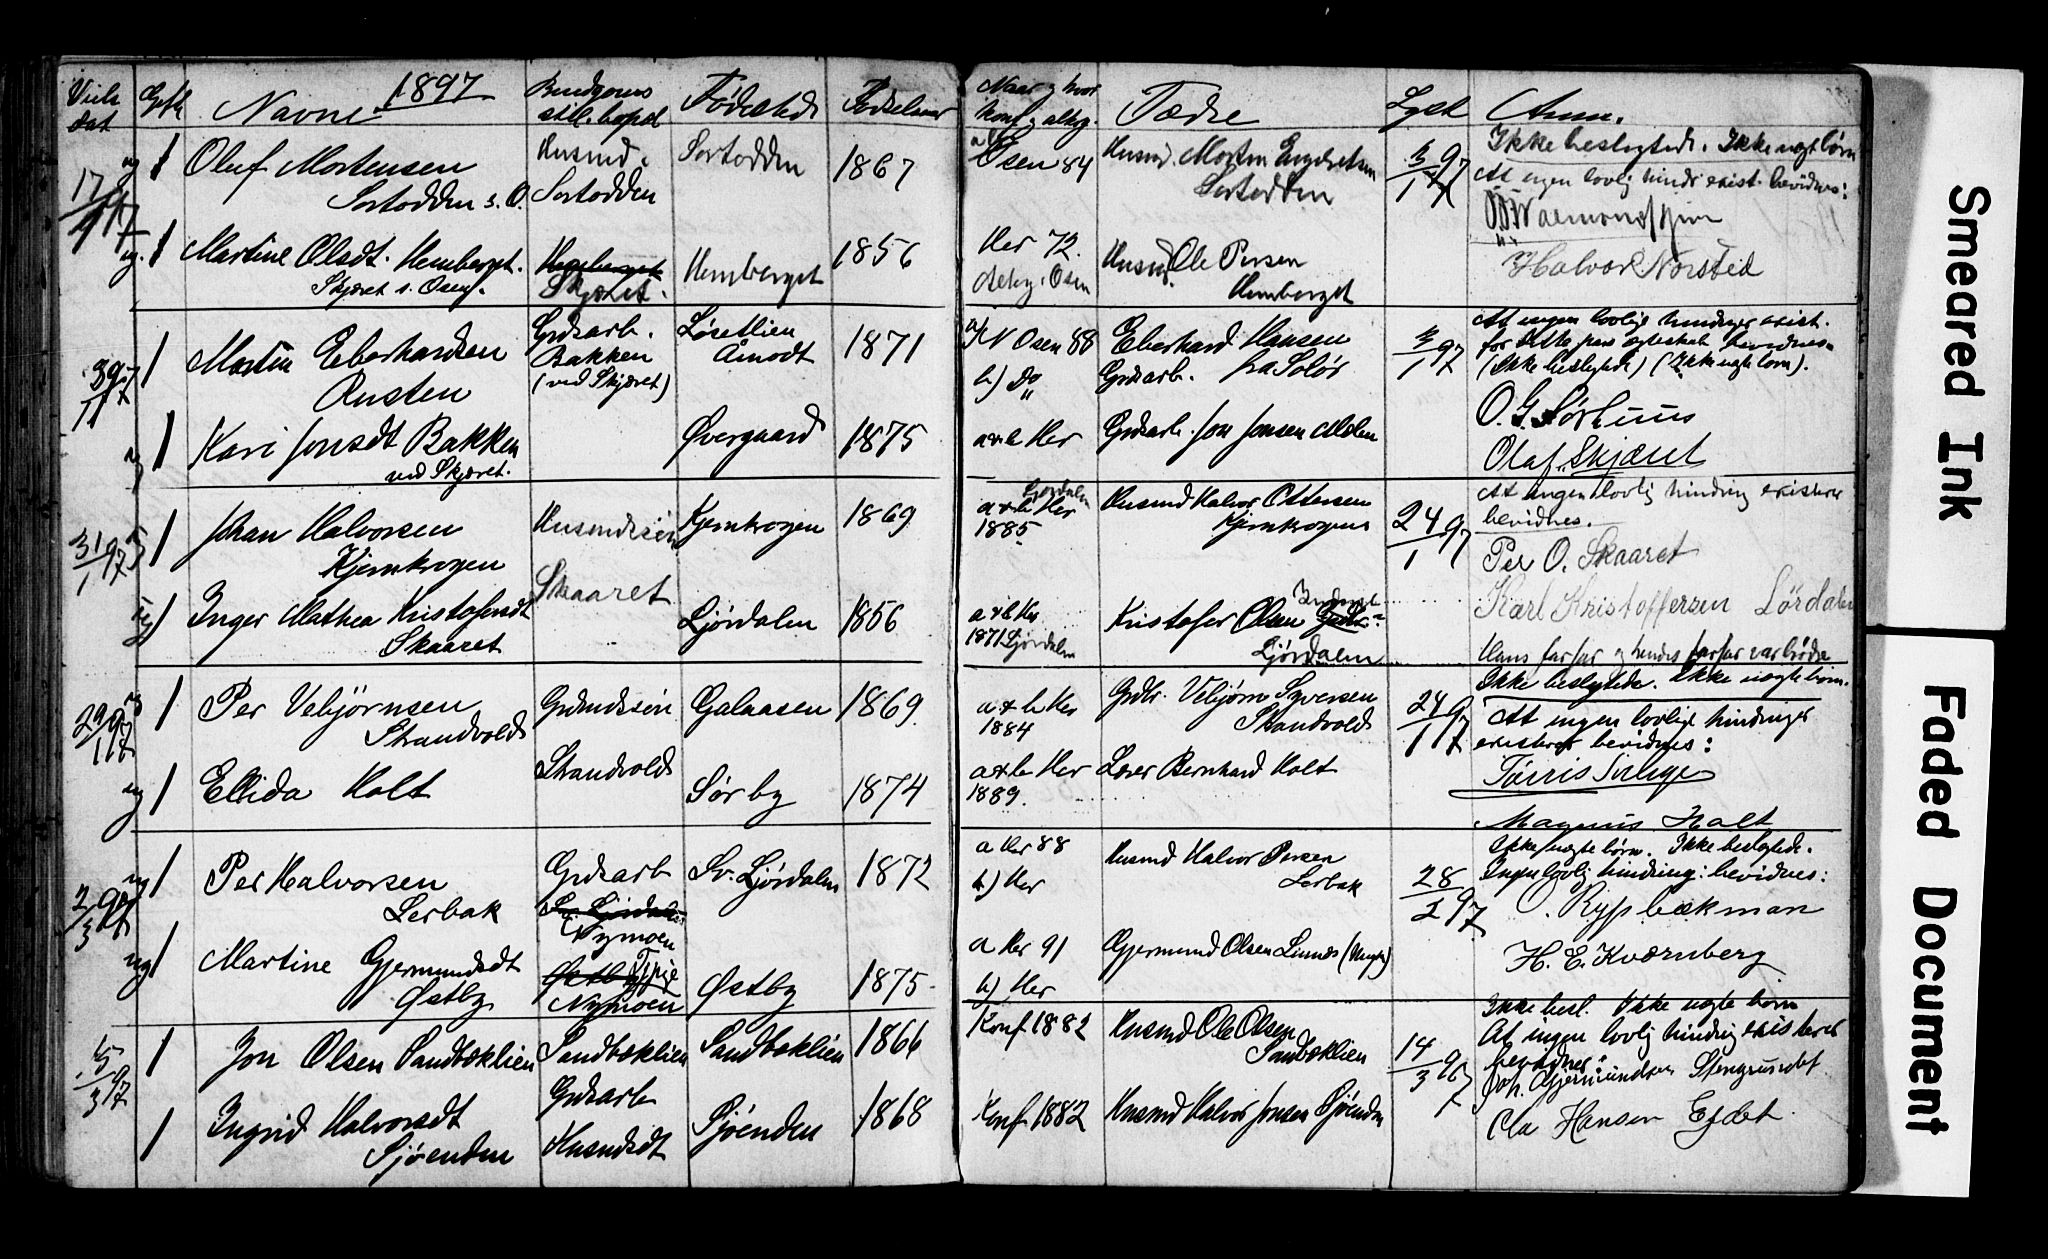 1897
Viels dat
Gifte
Navne
Brudgoms still. bopæl
Fødested
Fødselsaar
Naar og hvor konf. og altg.
Fædre
Lyst
Anm.
17/1 97
ug 1 Oluf Mortensen
Sortodden s. O.
Husmd.
Sortodden
Sortodden
1867
Osen 84
Husmd. Morten Engebretsen
Sortodden
3/1 97
Ikke beslegtede. Ikke uegte børn
At ingen lovlig hindr exist. bevidnes:
ug. 1 Martine Olsdt. Hemberget.
Skjæret s. Osen.
Skjæret.
Hemberget
1856
Her 72
Altg. Osen
Husmd. Ole Persen
Hemberget
Halvor Norsted
1 Morten Eberhardsen
Rusten
Grdsarb.
Bakken
(ved Skjæret)
Løsetlien
Åmodt
1871
a) N Osen 88
b) Do
Eberhard Hansen
Grdsarb. fra Solør
3/1 97
At ingen lovlige hindringer exist.
for dette pars egteskab bevidnes
(Ikke beslegtede) (Ikke uegte børn).
O. G. Sørhuus
ug 1 Kari Jonsdt Bakken
ved Skjæret.
Øvergaard
1875
a & b Her
Grdsarb. Jon Jonsen
Olaf Skjæret
31/1 97
1 Johan Halvorsen
Kjernkrogen
Husmdssøn
Kjernkrogen
1869
Ljørdalen
a & b Her
1885
Husmd Halvor Ottersen
Kjernkrogen
24/1 97
At ingen lovlig hindring existerer
bevidnes.
Per O. Skaaret
1 Inger Mathea Kristofersdt
Skaaret
Skaaret
Ljørdalen
1856
a & b Her
1871 Ljørdalen
Kristofer Olsen
Ljørdalen
Karl Kristoffersen Lördalen
Hans farfar og hendes farfar var brødre
29/1 97
1 Per Vebjørnsen
Strandvold
Grdmdssøn
Strandvold
Galaasen
1869
a & b Her
1884
Grdbr. Vebjørn Syversen
Strandvold
24/1 97
Ikke beslegtede. Ikke uegte børn.
At ingen lovlige hindringer
existerer bevidnes:
ug 1 Ellida Holt
Sørby
1874
a & b Her
1889.
Lærer Bernhard Holt
Magnus Holt
2/3 97
ug 1 Per Halvorsen
Lerbak
Grdsarb
Nymoen
Sv. Ljørdalen
1872
a Her 88
b) Her
Husmd Halvor Persen
Lerbak
28/2 97
Ikke uegte børn. Ikke beslegtede.
Ingen lovlig hindring: bevidnes:
O. Rypbækman
ug 1 Martine Gjermundsdt
Østby
Østby Tpige
Nymoen
Østby
1875
a Her 91
b) Her
Gjermund Olsen Linnes (Uegte)
H. E. Kværnberg
15/3 97
1 Jon Olsen Sandbæklien
Sandbæklien
Grdsarb
Sandbæklien
1866
Konf 1882
Husmd Ole Olsen
Sandbæklien
14/3 97
Ikke besl. Ikke uegte børn
At ingen lovlig hindring existerer
bevidner:
Joh. Gjermundsen Stengrundet
1 Ingrid Halvorsdt
Sjøenden
Husmdsdt
Sjøenden
1868
Konf 1882
Husmd Halvor Jonsen Sjøenden
Ola Hansen
Smeared Ink
Faded Document